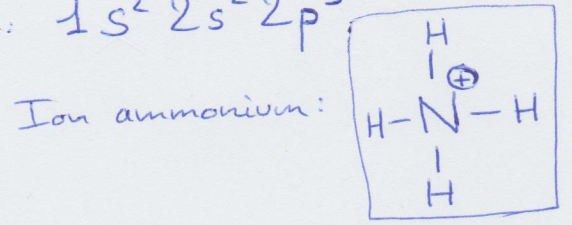 1s² 2s² 2p
Ion ammonium:
H
⊕
H-N-H
H